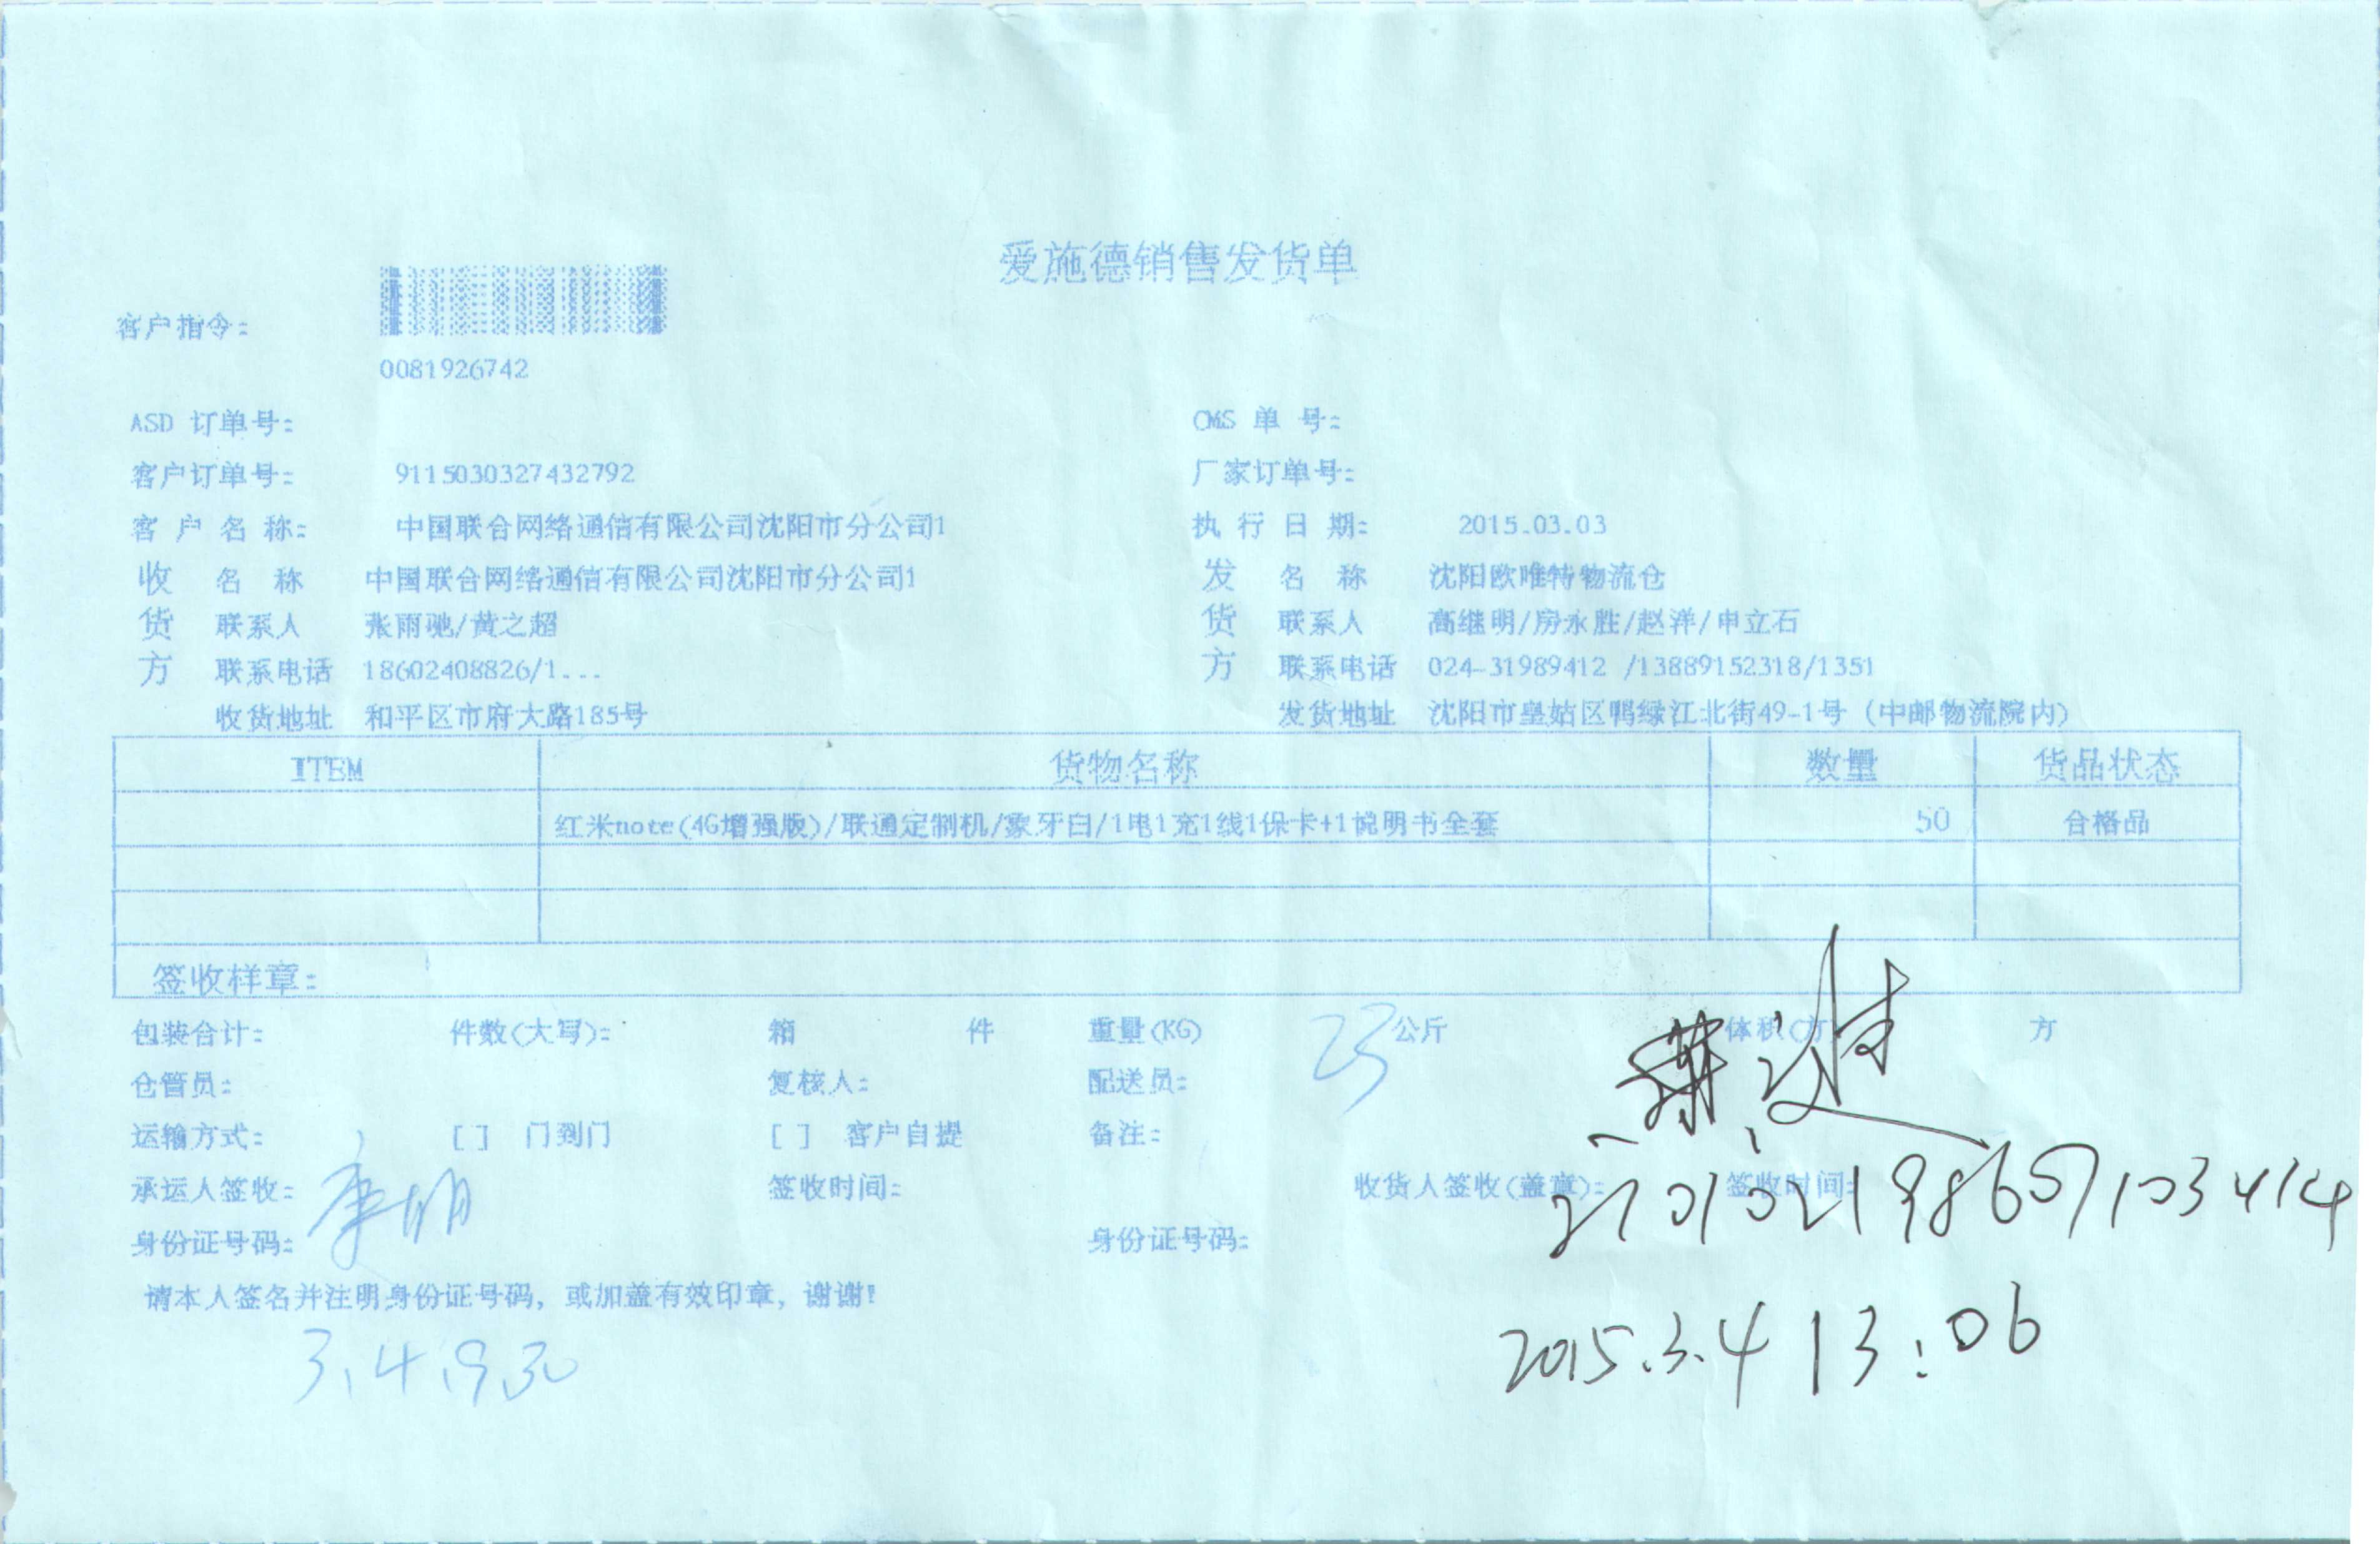 爱施德销售发货单
客户指令:
0081926742
ASD 订单号: CMS 单 号:
客户订单号: 9115030327432792 厂家订单号:
客 户 名 称: 中国联合网络通信有限公司沈阳市分公司1 执 行 日 期: 2015.03.03
收 名 称 中国联合网络通信有限公司沈阳市分公司1 发 名 称 沈阳欧唯特物流仓
货 联系人 张雨驰/黄之超 货 联系人 高继明/房永胜/赵洋/申立石
方 联系电话 18602408826/1... 方 联系电话 024-31989412 /13889152318/1351
收货地址 和平区市府大路185号 发货地址 沈阳市皇姑区鸭绿江北街49-1号 (中邮物流院内)
ITEM 货物名称 数量 货品状态
红米note(4G增强版)/联通定制机/象牙白/1电1充1线1保卡+1说明书全套 50 合格品
签收样章:
包装合计: 件数(大写): 箱 件 重量(KG) 23 公斤 体积(方) 方
仓管员: 复核人: 配送员:
运输方式: [ ] 门到门 [ ] 客户自提 备注:
承运人签收: 签收时间: 收货人签收(盖章): 签收时间:
身份证号码: 身份证号码:
请本人签名并注明身份证号码, 或加盖有效印章, 谢谢!
3.4.9.30
2015.3.4 13:06